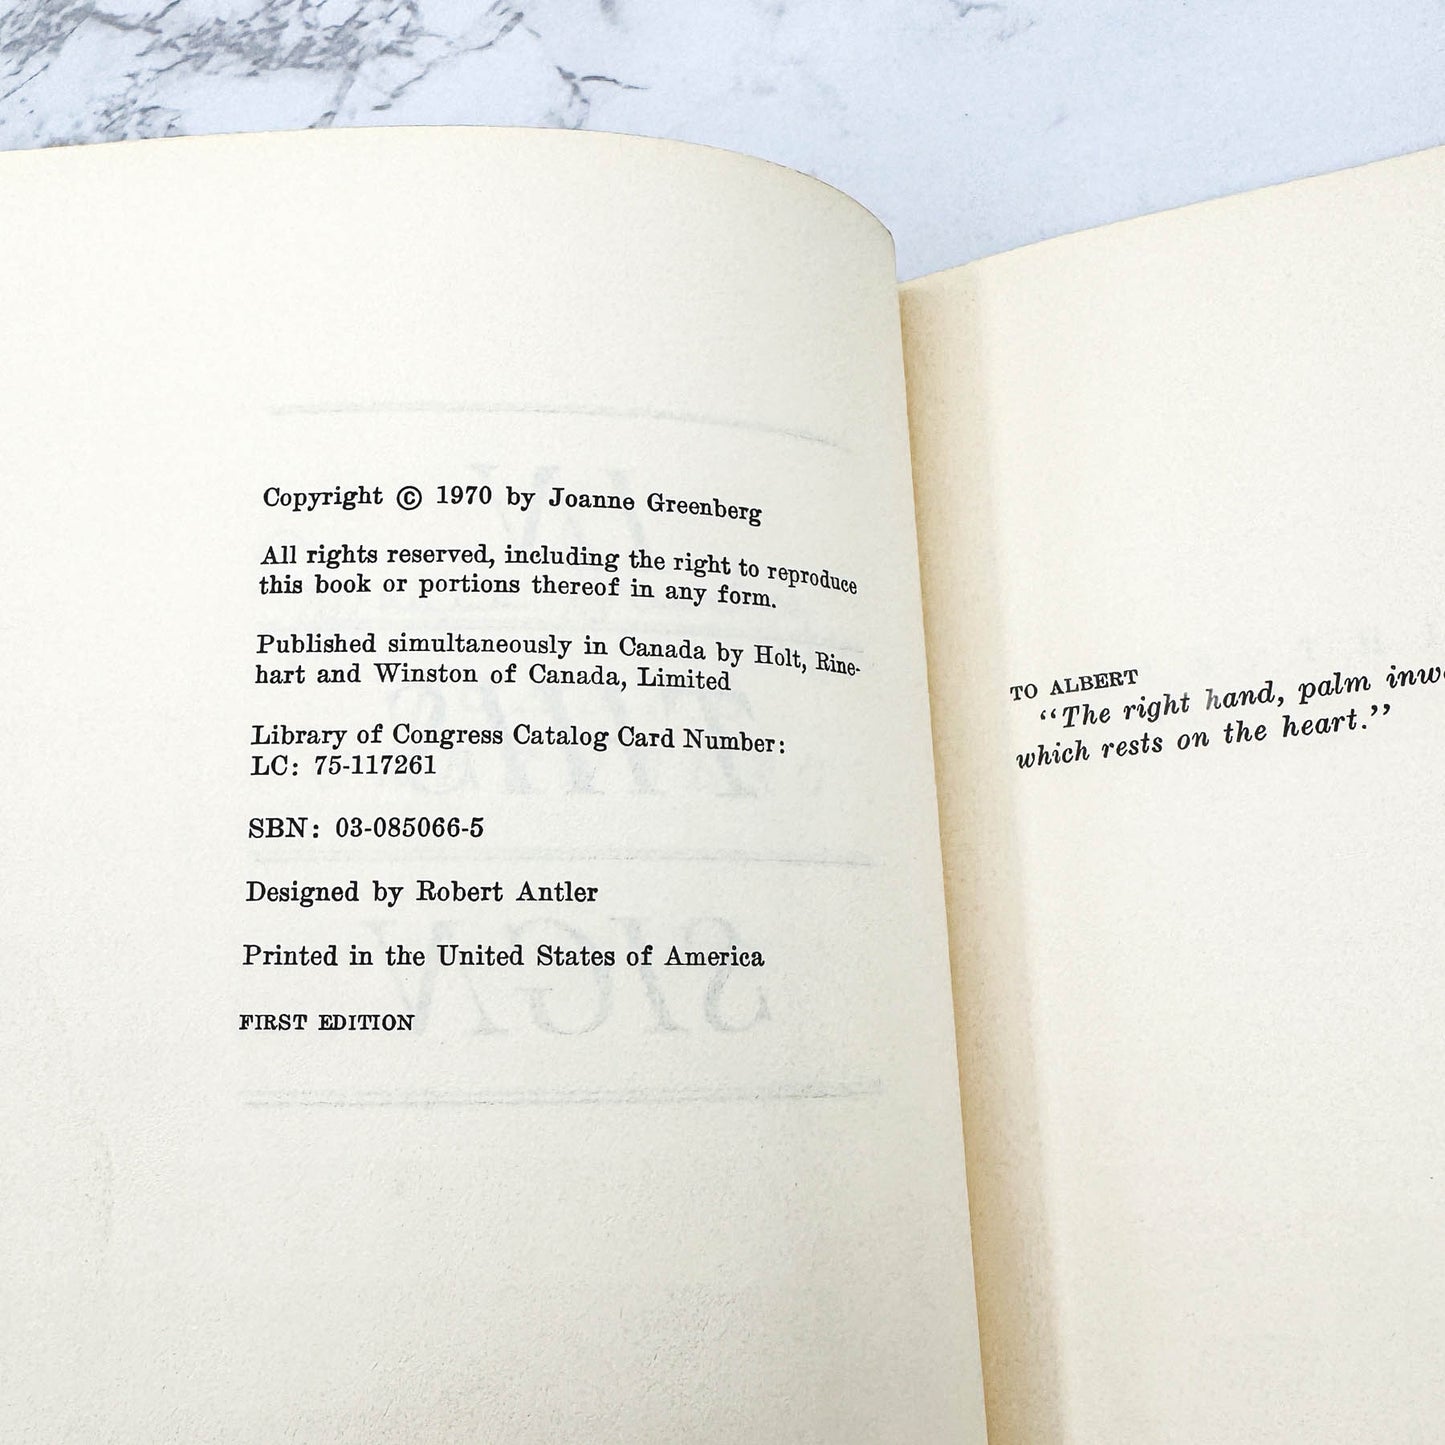 Copyright © 1970 by Joanne Greenberg
All rights reserved, including the right to reproduce
this book or portions thereof in any form.
Published simultaneously in Canada by Holt, Rine-
hart and Winston of Canada, Limited
Library of Congress Catalog Card Number:
LC: 75-117261
SBN: 03-085066-5
Designed by Robert Antler
Printed in the United States of America
FIRST EDITION
TO ALBERT
“The right hand, palm
which rests on the heart.”
IN
THIS
SIGN